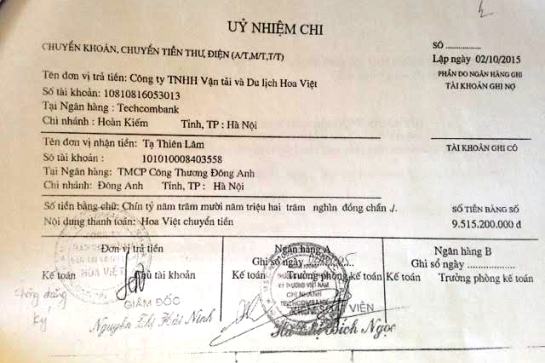 UỶ NHIỆM CHI
CHUYỂN KHOẢN, CHUYỂN TIỀN THƯ, ĐIỆN (A/T,M/T,T/T)
SỐ ..................
Lập ngày 02/10/2015
PHẦN DO NGÂN HÀNG GHI
TÀI KHOẢN GHI NỢ
Tên đơn vị trả tiền: Công ty TNHH Vận tải và Du lịch Hoa Việt
Số tài khoản: 10810816053013
Tại Ngân hàng : Techcombank
Chi nhánh : Hoàn Kiếm Tỉnh, TP : Hà Nội
Tên đơn vị nhận tiền: Tạ Thiên Lâm
TÀI KHOẢN GHI CÓ
Số tài khoản : 101010008403558
Tại Ngân hàng: TMCP Công Thương Đông Anh
Chi nhánh: Đông Anh Tỉnh, TP : Hà Nội
Số tiền bằng chữ: Chín tỷ năm trăm mười năm triệu hai trăm nghìn đồng chẵn ./.
SỐ TIỀN BẰNG SỐ
Nội dung thanh toán: Hoa Việt chuyển tiền
9.515.200.000 đ
Đơn vị trả tiền
Ngân hàng A
Ngân hàng B
Ghi sổ ngày
Ghi sổ ngày ..................
Kế toán Chủ tài khoản
Kế toán Trưởng phòng kế toán
Kế toán Trưởng phòng kế toán
HOA VIỆT
KỸ THƯƠNG VIỆT NAM
CHI NHÁNH
GIÁM ĐỐC
VIÊN
Nguyễn Thị Hải Ninh
Hà Thị Bích Ngọc